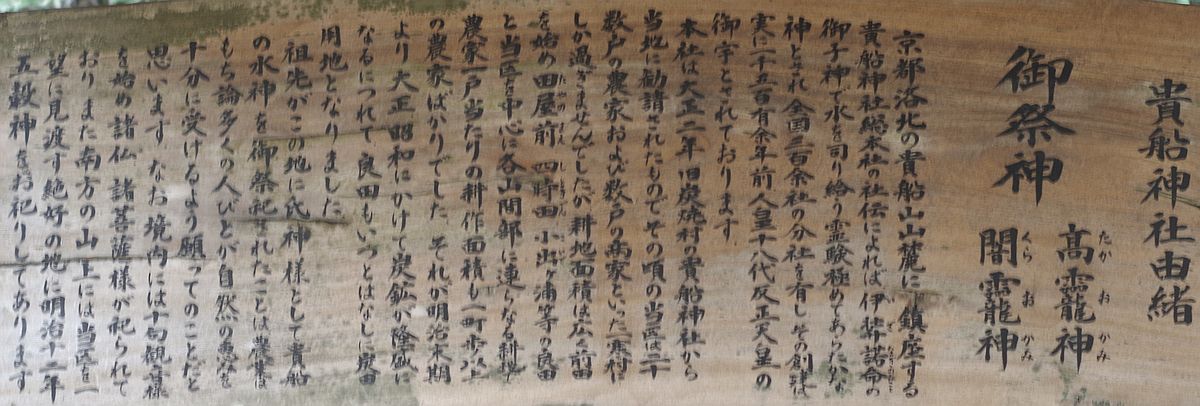 貴船神社由緒
御祭神
高龗神
たか お かみ
闇龗神
くら お かみ
京都洛北の貴船山麓に鎮座する
貴船神社総本社の社伝によれば伊弉諾命の
御子神で水を司り給う霊験極めてあらたかな
神とされ全国三百余社の分社を有しその創建は
実に千五百有余年前人皇十八代反正天皇の
御宇とされております
本社は大正二年旧炭焼村の貴船神社から
当地に勧請されたものでその頃の当区は二十
数戸の農家および数戸の商家といった寒村に
しか過ぎませんでしたが耕地面積は広く前田
を始め田屋前 四時田 小出ヶ浦等の良田
と当区を中心に各山間部に連らなる耕地
農家一戸当たりの耕作面積も一町歩以上
の農家ばかりでした それが明治末期
より大正 昭和にかけて炭鉱が隆盛に
なるにつれて良田もいつとはなしに炭田
用地となりました
祖先がこの地に氏神様として貴船
の水神を御祭祀されたことは農業は
もち論多くの人びとが自然の恵みを
十分に受けるよう願ってのことだと
思います なお境内には十句観音様
を始め諸仏 諸菩薩様が祀られて
おりまた南方の山上には当区を一
望に見渡す絶好の地に明治十二年
五穀神をお祀りしてあります